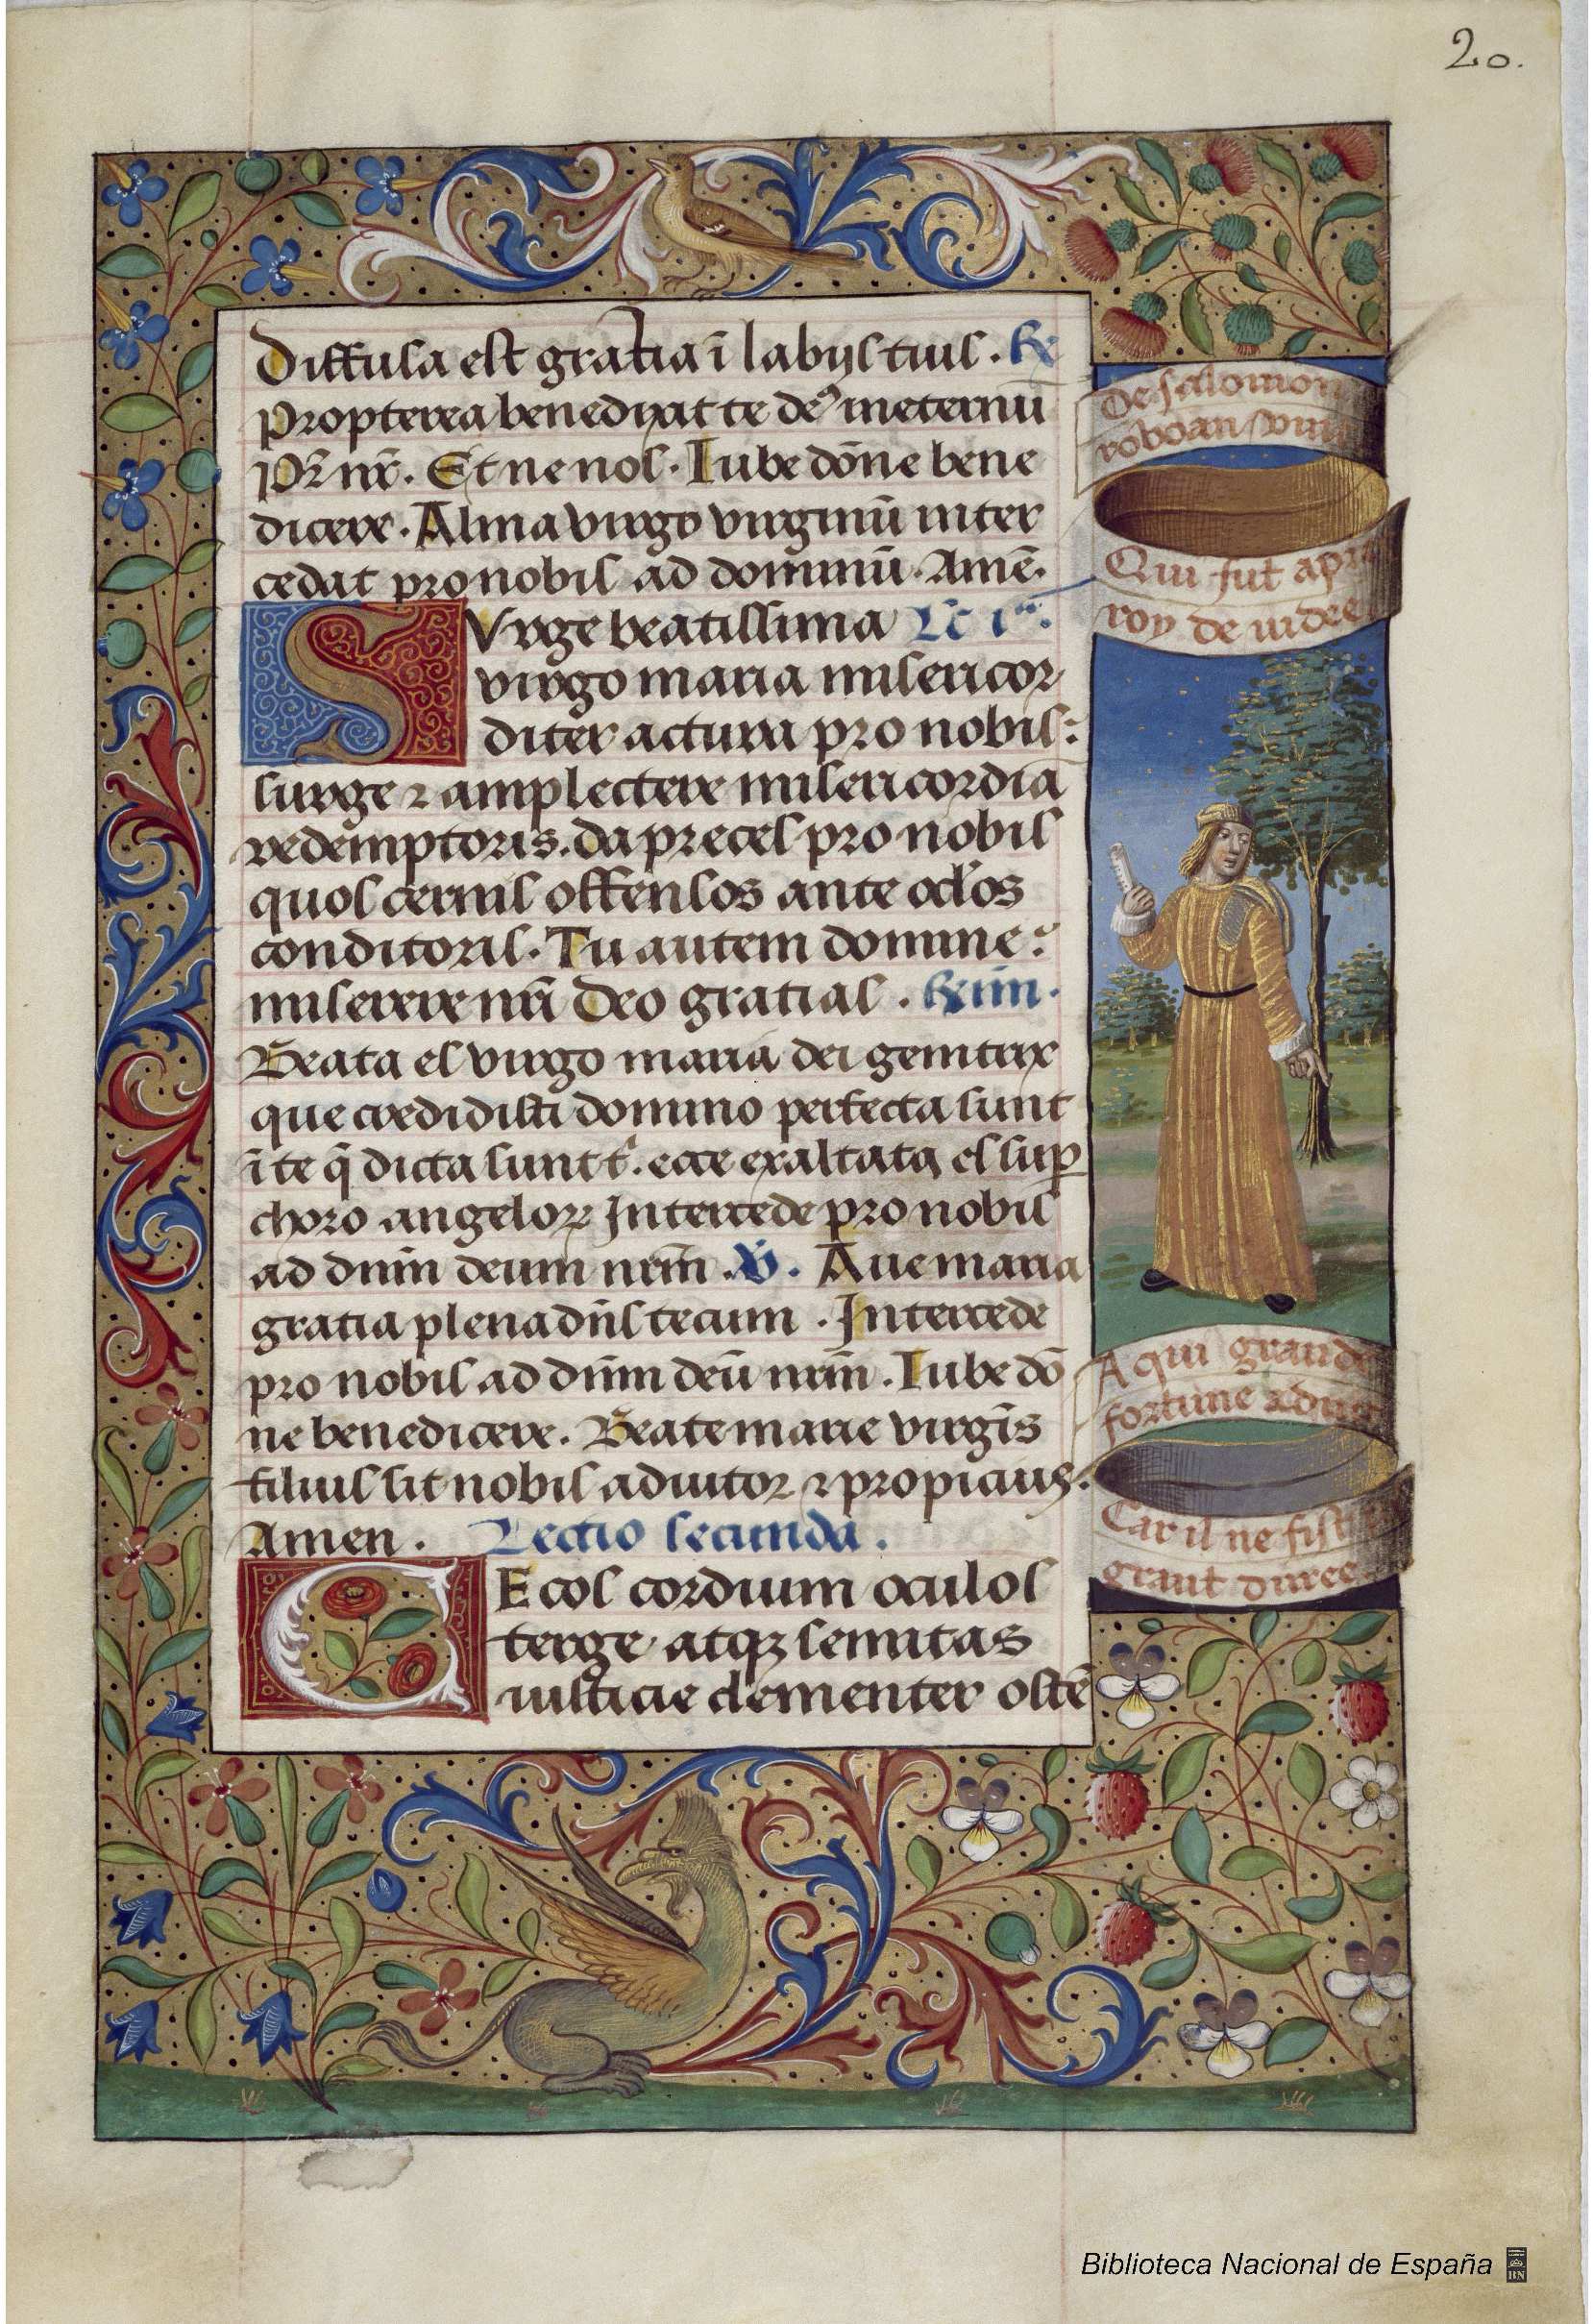 2o.
Diffusa est gratia ī labijs tuis. R̄
Propterea benedixit te deꝰ ineternū
Pr̄ nr̄. Et ne nos. Iube dōne bene
dicere. Alma virgo virginū inter
cedat pro nobis ad dominū. Amē.
Surge beatissima Lc̄ Iᵃ.
virgo maria misericor
diter actura pro nobis:
surge ⁊ amplectere misericordiā
redemptoris. da preces pro nobis
quos cernis offensos ante ocl'os
conditoris. Tu autem domine:
miserere nr̄i Deo gratias. R̄ium.
Beata es virgo maria dei genitrix
que credidisti domino perfecta sunt
ī te q̄ dicta sunt t'. ecce exaltata es suꝑ
choro angeloꝝ Intercede pro nobis
ad dn̄m deum nr̄m. V̄. Aue maria
gratia plena dn̄s tecum. Intercede
pro nobis ad dn̄m deū nr̄m. Iube dō
ne benedicere. Beate marie virgīs
filius sit nobis adiutor ⁊ propicius.
Amen. Lectio secunda.
CEcos cordium oculos
terge atqꝫ semitas
iusticie clementer ostē
De salomon
roboan vint
Qui fut
roy de iudee
A qui grande
fortune aduint
Car il ne fist
grant duree
Biblioteca Nacional de España
BN